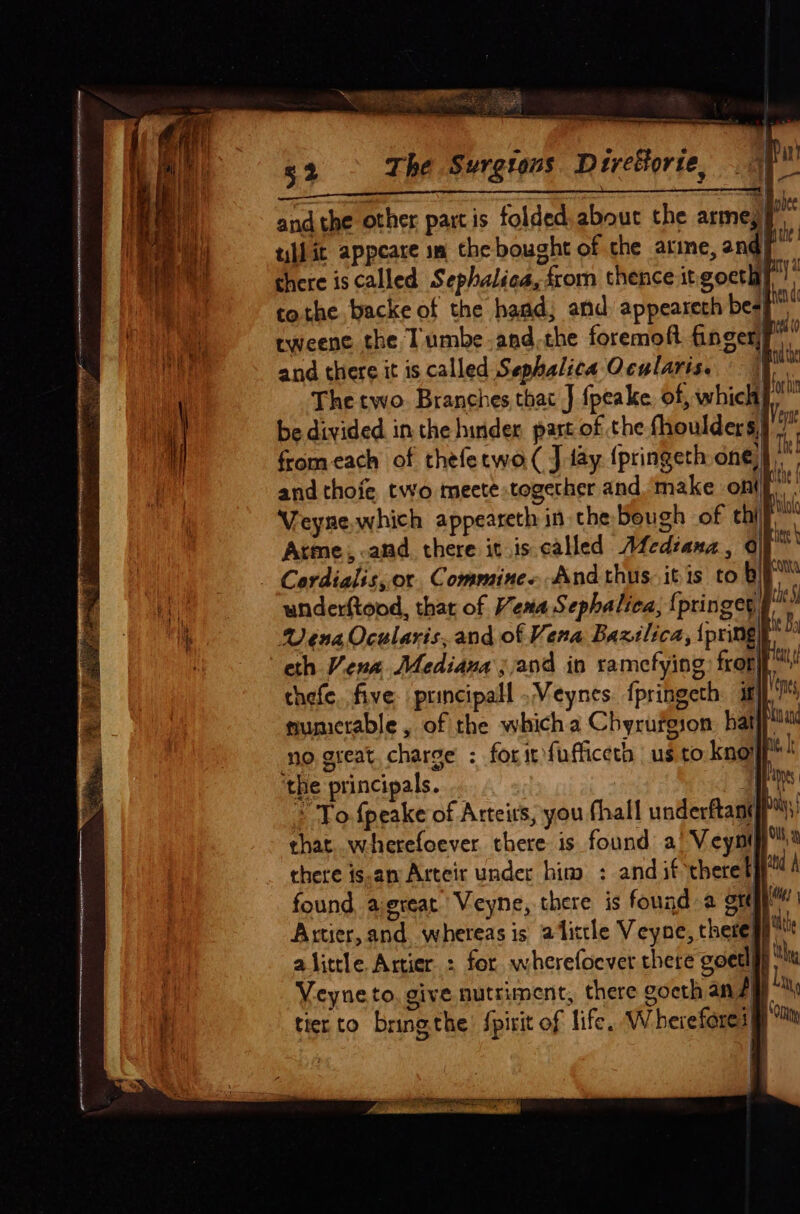 52 The Surgions Directorie,
and the other part is folded about the arme,
till it appeare in the bought of the arme, and
there is called Sephalica, from thence it goeth
to the backe of the hand; and appeareth be-
tweene the Tumbe and the foremoſt finger,
and there it is called Sephalica Ocularis.
The two Branches that I ſpeake of, which
be divided in the hinder part of the ſhoulders,
from each of theſe two (I ſay ſpringeth one,
and thoſe two meete together and make
Veyne which appeareth in the bough of
Arme, and there it is called Mediana,
Cordialis, or Commine. And thus it is to
underſtood, that of Vena Sephalica, ſpringeth
Vena Ocularis, and of Vena Bazilica, ſpring
eth Vena Mediana, and in ramefying from
theſe five principall Veynes ſpringeth
numerable, of the which a Chyrurgion
no great charge : for it ſufficeth us to
the principals.
To ſpeake of Arteirs, you ſhall underſtand
that wherefoever there is found a
there is an Arteir under him : and if there
found a great Veyne, there is found a
Artier, and whereas is a little Veyne, there
a little Artier : for wherefoever there goeth
Veyne to give nutriment, there goeth an
tier to bring the ſpirit of life. Wherefore